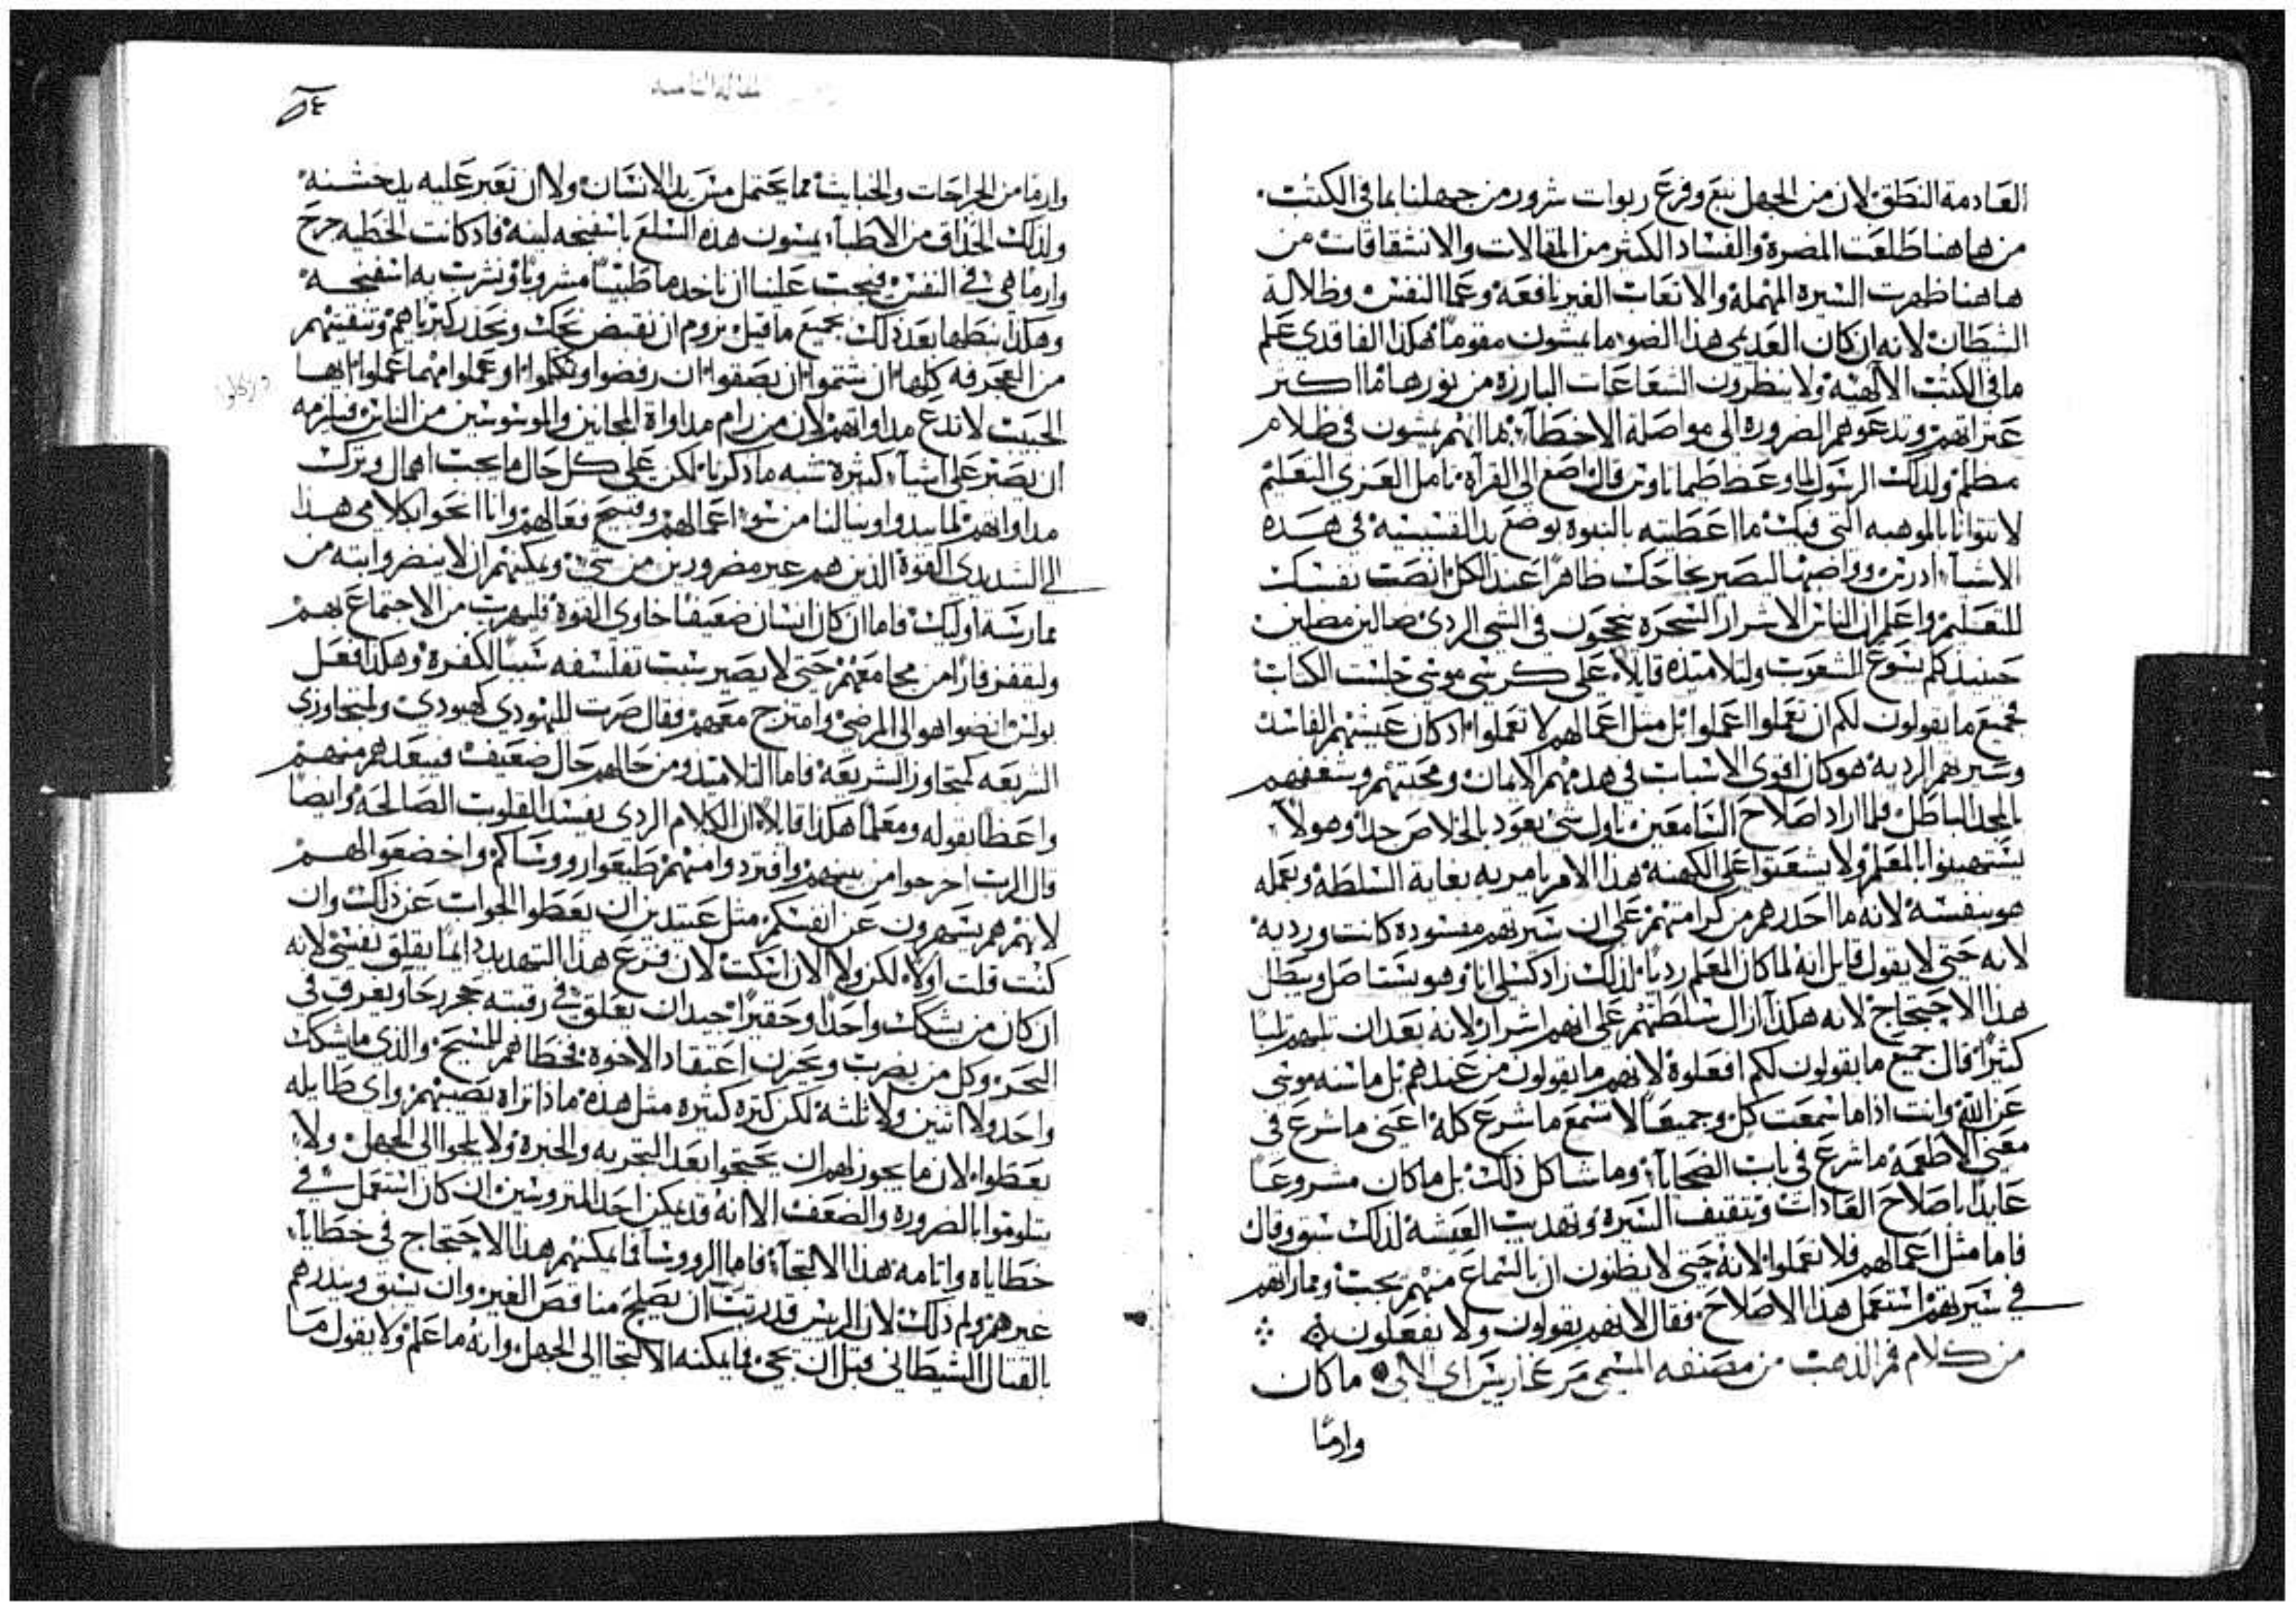 العادمة النطق لان من الجهل نبع وفرع ربوات شرور من جهلنا بما في الكتب
من هاهنا طلعت المضرة والفساد الكثير من المقالات والانشقاقات من
هاهنا ظهرت السيرة المهملة والاتعاب الغير نافعة وعما النفس وظلالة
الشطان لانه ان كان العديمي هذا الضو ما يمشون مقوما هكذا الفاقدي علم
ما في الكتب الالهية ولا ينظرون الشعاعات البارزة من نورها ما اكثر
عثراتهم وتدعوهم الضرورة الى مواصلة الاخطاء بما انهم يمشون في ظلام
مظلم ولذلك الرسول لما وعظ طيماتاوس قال اصغ الى القراة تامل العزي التعليم
لا تتوانا بالموهبه التي فيك ما اعطيته بالنبوة بوضع يد القسيسية في هذه
الاشياء ادرس وواضبها ليصير نجاحك ظاهرا عند الكل انصت نفسك
للتعليم واعلم ان الناس الاشرار السحرة ينجحون في الشي الردي ضالين مضلين
حينيذ كلم يسوع الشعوب ولتلاميذه قايلا على كرسي موسى جلست الكتاب
فجميع ما يقولون لكم ان تعملوا اعملوا بل مثل اعمالهم لا تعملوا اذ كان عيشتهم الفاسد
وسيرهم الردية هو كان اقوى الاسباب في هدمهم الايمان ومحبتهم وشغفهم
بالمجد الباطل فلما اراد اصلاح السامعين باول شي يعود بالخلاص جدا وهو لا
يستهينوا بالمعلم ولا يشغبوا على الكهنة هذا الامر يامر به بغاية السلطة ويعمله
هو بنفسه لانه ما احدرهم من كرامتهم على ان سيرتهم مفسودة كانت وردية
لانه حتى لا يقول قايل انه لما كان المعلم رديا لذلك زاد كسلي انا وهو يستاصل ويبطل
هذا الاحتجاج لانه هكذا ازال سلطتهم على انهم اشرار لانه بعد ان ثلبهم ثلبا
كثيرا قال جميع ما يقولون لكم افعلوه لانهم ما يقولون من عندهم بل ما سنه موسى
عن الله وانت اذا ما سمعت كل وجميعا لا تسمع ما شرع كله اعني ما شرع في
معنى الاطعمة ما شرع في باب الضحايا وما شاكل ذلك بل ما كان مشروعا
عايدا باصلاح العادات وتثقيف السيرة وتهديب العيشة لذلك سبق وقال
فاما مثل اعمالهم فلا تعملوا لانه حتى لا يظنون ان بالسماع منهم يجب ومماراتهم
في سيرتهم استعمل هذا الاصلاح فقال لانهم يقولون ولا يفعلون
من كلام فم الذهب من مصنفه المسمى مرغاريتس اي الالى ما كان
وارما
٥٤
وارما من الجراحات والخبايث مما يحتمل مس يد الانسان ولا ان تعبر عليه يد خشنة
ولذلك الحذاق من الاطباء يمسون هذه السلع باسفنجه لينة فاذ كانت الخطيه جرح
وارما هي في النفس فيجب علينا ان ناخد ماطيبا مشروبا ونشرب به اسفنجه
وهكذا نبطها بعد ذلك بجميع ما قيل نروم ان نقبض نجك ونحذر كبرياهم وتنقيتهم
من العجرفه كلها ان شتموا ان بصقوا ان رفضوا وتكلموا او عملوا مهما عملوا ايها
الحبيب لا تدع مداواتهم لان من رام مداواة المجانين والموسوسين من الناس فيلزمه
ان يصبر على اشياء كثيرة شبه ما ذكرنا لكن على كل حال ما يجب اهمال وترك
مداواتهم لما يبدوا وينالنا من سوء اعمالهم وقبيح فعالهم وانا انحوا بكلامي هذا
الى الشديدي القوة الذين هم غير مضرورين من شي ويمكنهم ان لا ينضروا البته من
ممارسة اوليك فاما ان كان انسان ضعيفا خاوي القوة فليهرب من الاجتماع بهم
وليقفز فارا من مجامعهم حتى لا يصير سبب تفلسفه شبيبا للكفرة وهكذا فعل
بولس انضوا هو الى المرضى وامتزج معهم فقال صرت لليهودي كيهودي ولمتجاوزي
الشريعه كمتجاوز الشريعة فاما التلاميذ ومن حالهم حال ضعيف فيبعدهم منهم
واعظا بقوله ومعلما هكذا قايلا ان الكلام الردي يفسد القلوب الصالحة وايضا
قال الرب اخرجوا من بينهم وافتردوا منهم طيعوا رووساكم واخضعوا لهم
لانهم هم يسهرون عن انفسكم مثل عتيدين ان يعطوا الجواب عن ذلك وان
كنت قلت اولا لكن ولا الان اسكت لان فزع هذا التهديد دايما يقلق نفسي لانه
ان كان من يشكك واحدا وحقيرا جيدا ان يعلق في رقبته حجر رحا ويغرق في
البحر وكل من يضرب ويحزن اعتقاد الاخوة فخطاهم للمسيح والذي ما يشكك
واحد ولا اثنين ولا ثلثة لكن كثره كثيره مثل هذه ماذا تراه يصيبهم واي طايله
يعطوا لان ما يجوز لهم ان يحتجوا بعد التجربه والخبرة ولا يلجوا الى الجهل ولا
يتلوموا بالضرورة والضعف الا انه قد يمكن احد المتروسين ان كان استعمل في
خطاياه واثامه هذا الالتجاء فاما الرووسا فما يمكنهم هذا الاحتجاج في خطايا
غيرهم ولم ذلك لان الريس قد رتب ان يصلح مناقص الغير وان يسبق وينذرهم
بالقتال الشيطاني قبل ان يجي فما يمكنه الالتجا الى الجهل وانه ما علم ولا يقول ما